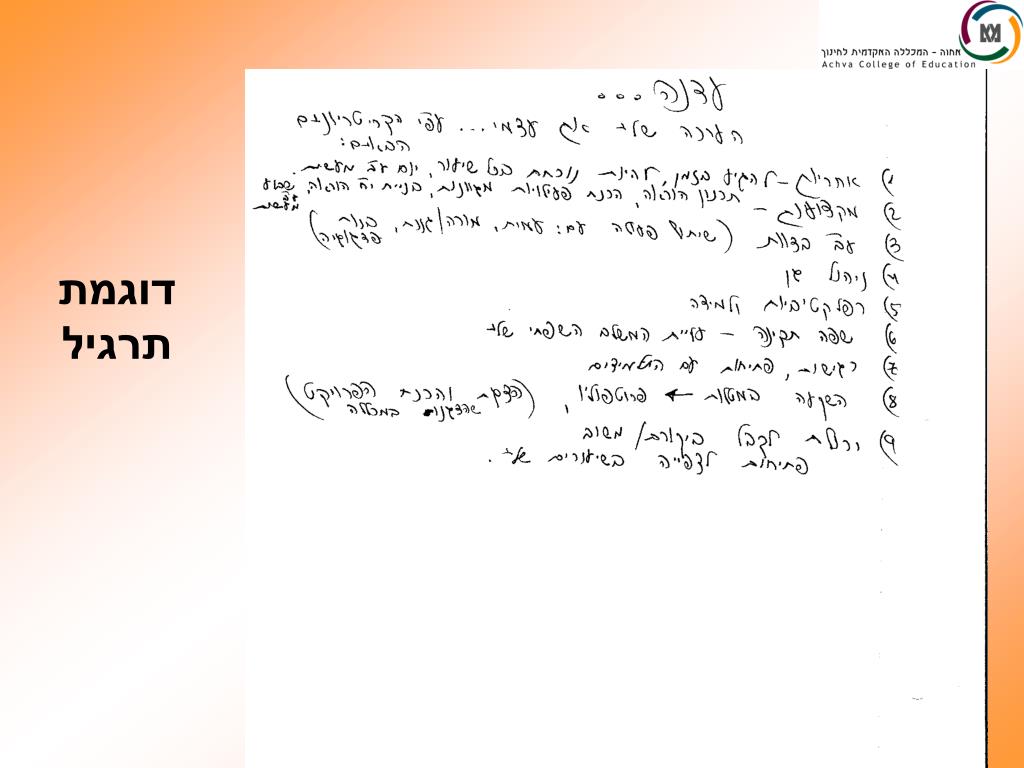 אחוה – המכללה האקדמית לחינוך
Achva College of Education
דוגמת
תרגיל
עדנה...
הערכה שלי את עצמי... עפ״י הקריטריונים
הבאים:
1) אחריות – להגיע בזמן, להיות נוכחת בכל שיעור, יום עב׳ מעשית.
2) מקצועיות – תכנון הוראה, הכנת פעילויות מגוונות, בניית יח׳ הוראה, שבוע
עב׳
מעשית
3) עב׳ בצוות (שיתוף פעולה עם: עמית, מורה/גננת, בנות
פדגוגיה)
4) ניהול גן
5) רפלקטיביות ולמידה
6) שפה תקינה – עליית המשלב השפתי שלי
7) רגישות, פתיחות עם התלמידים
8) השקעה במטלות ← פרוטפוליו, (הצגת והכנת הפרויקט
שהצגנו במכללה)
9) יכולת לקבל ביקורת/משוב
פתיחות לצפייה בשיעורים שלי.